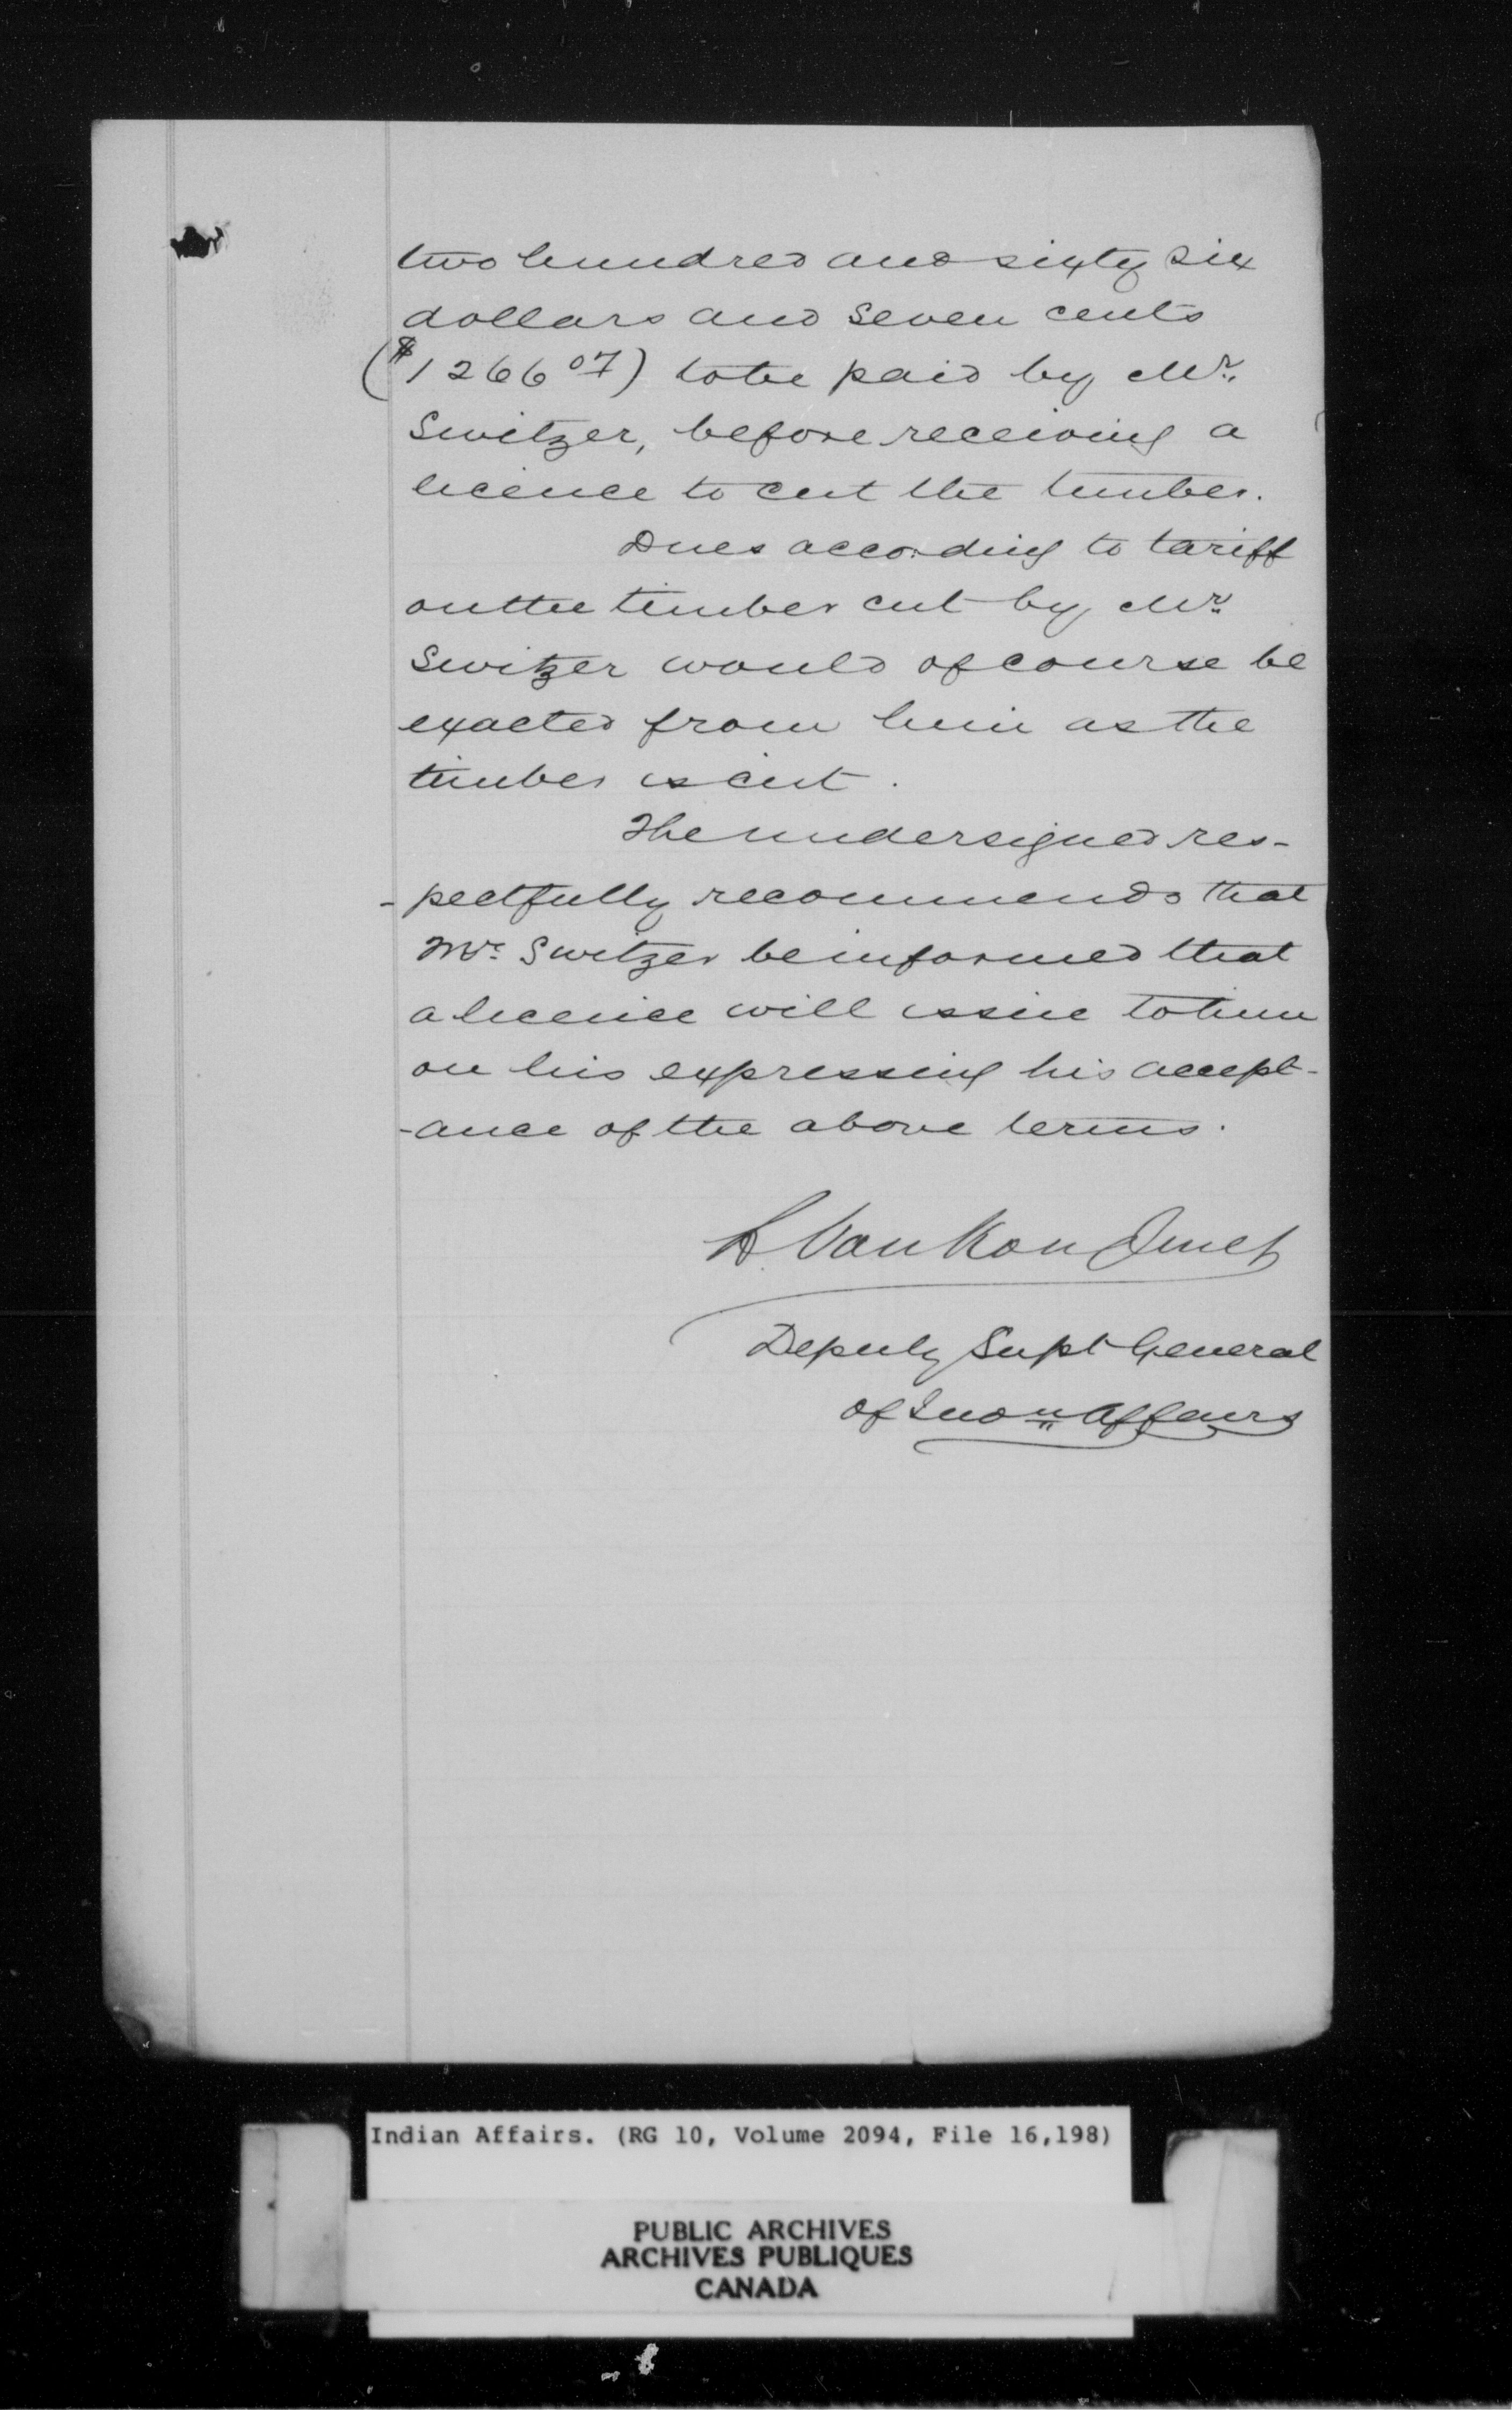 two hundred and sixty six
dollars and seven cents
($1266 07) to be paid by Mr.
Switzer, before receiving a
licence to cut the timber.
Dues according to tariff
on the timber cut by Mr.
Switzer would of course be
exacted from him as the
timber is cut.
The undersigned res-
-pectfully recommends that
Mr. Switzer be informed that
a licence will issue to him
on his expressing his accept-
-ance of the above terms.
L VanKoughnet
Deputy Supt General
of Indn Affairs
Indian Affairs. (RG 10, Volume 2094, File 16,198)
PUBLIC ARCHIVES
ARCHIVES PUBLIQUES
CANADA